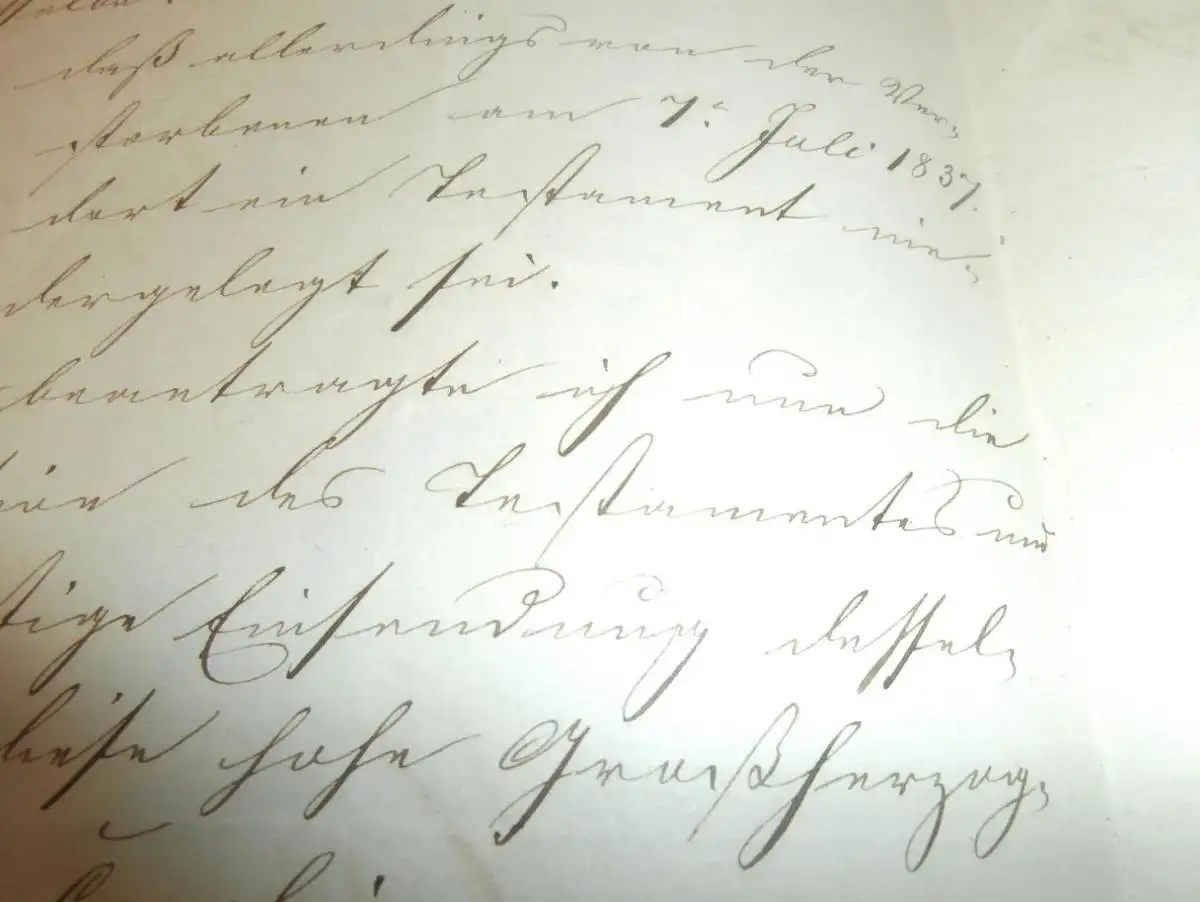 daß allerdings von der Ver-
storbenen am 7t. Juli 1837.
dort ein Testament nie-
dergelegt sei.
beantragte ich nun die
des Testamentes und
tige Einsendung dessel-
diese hohe Großherzog-